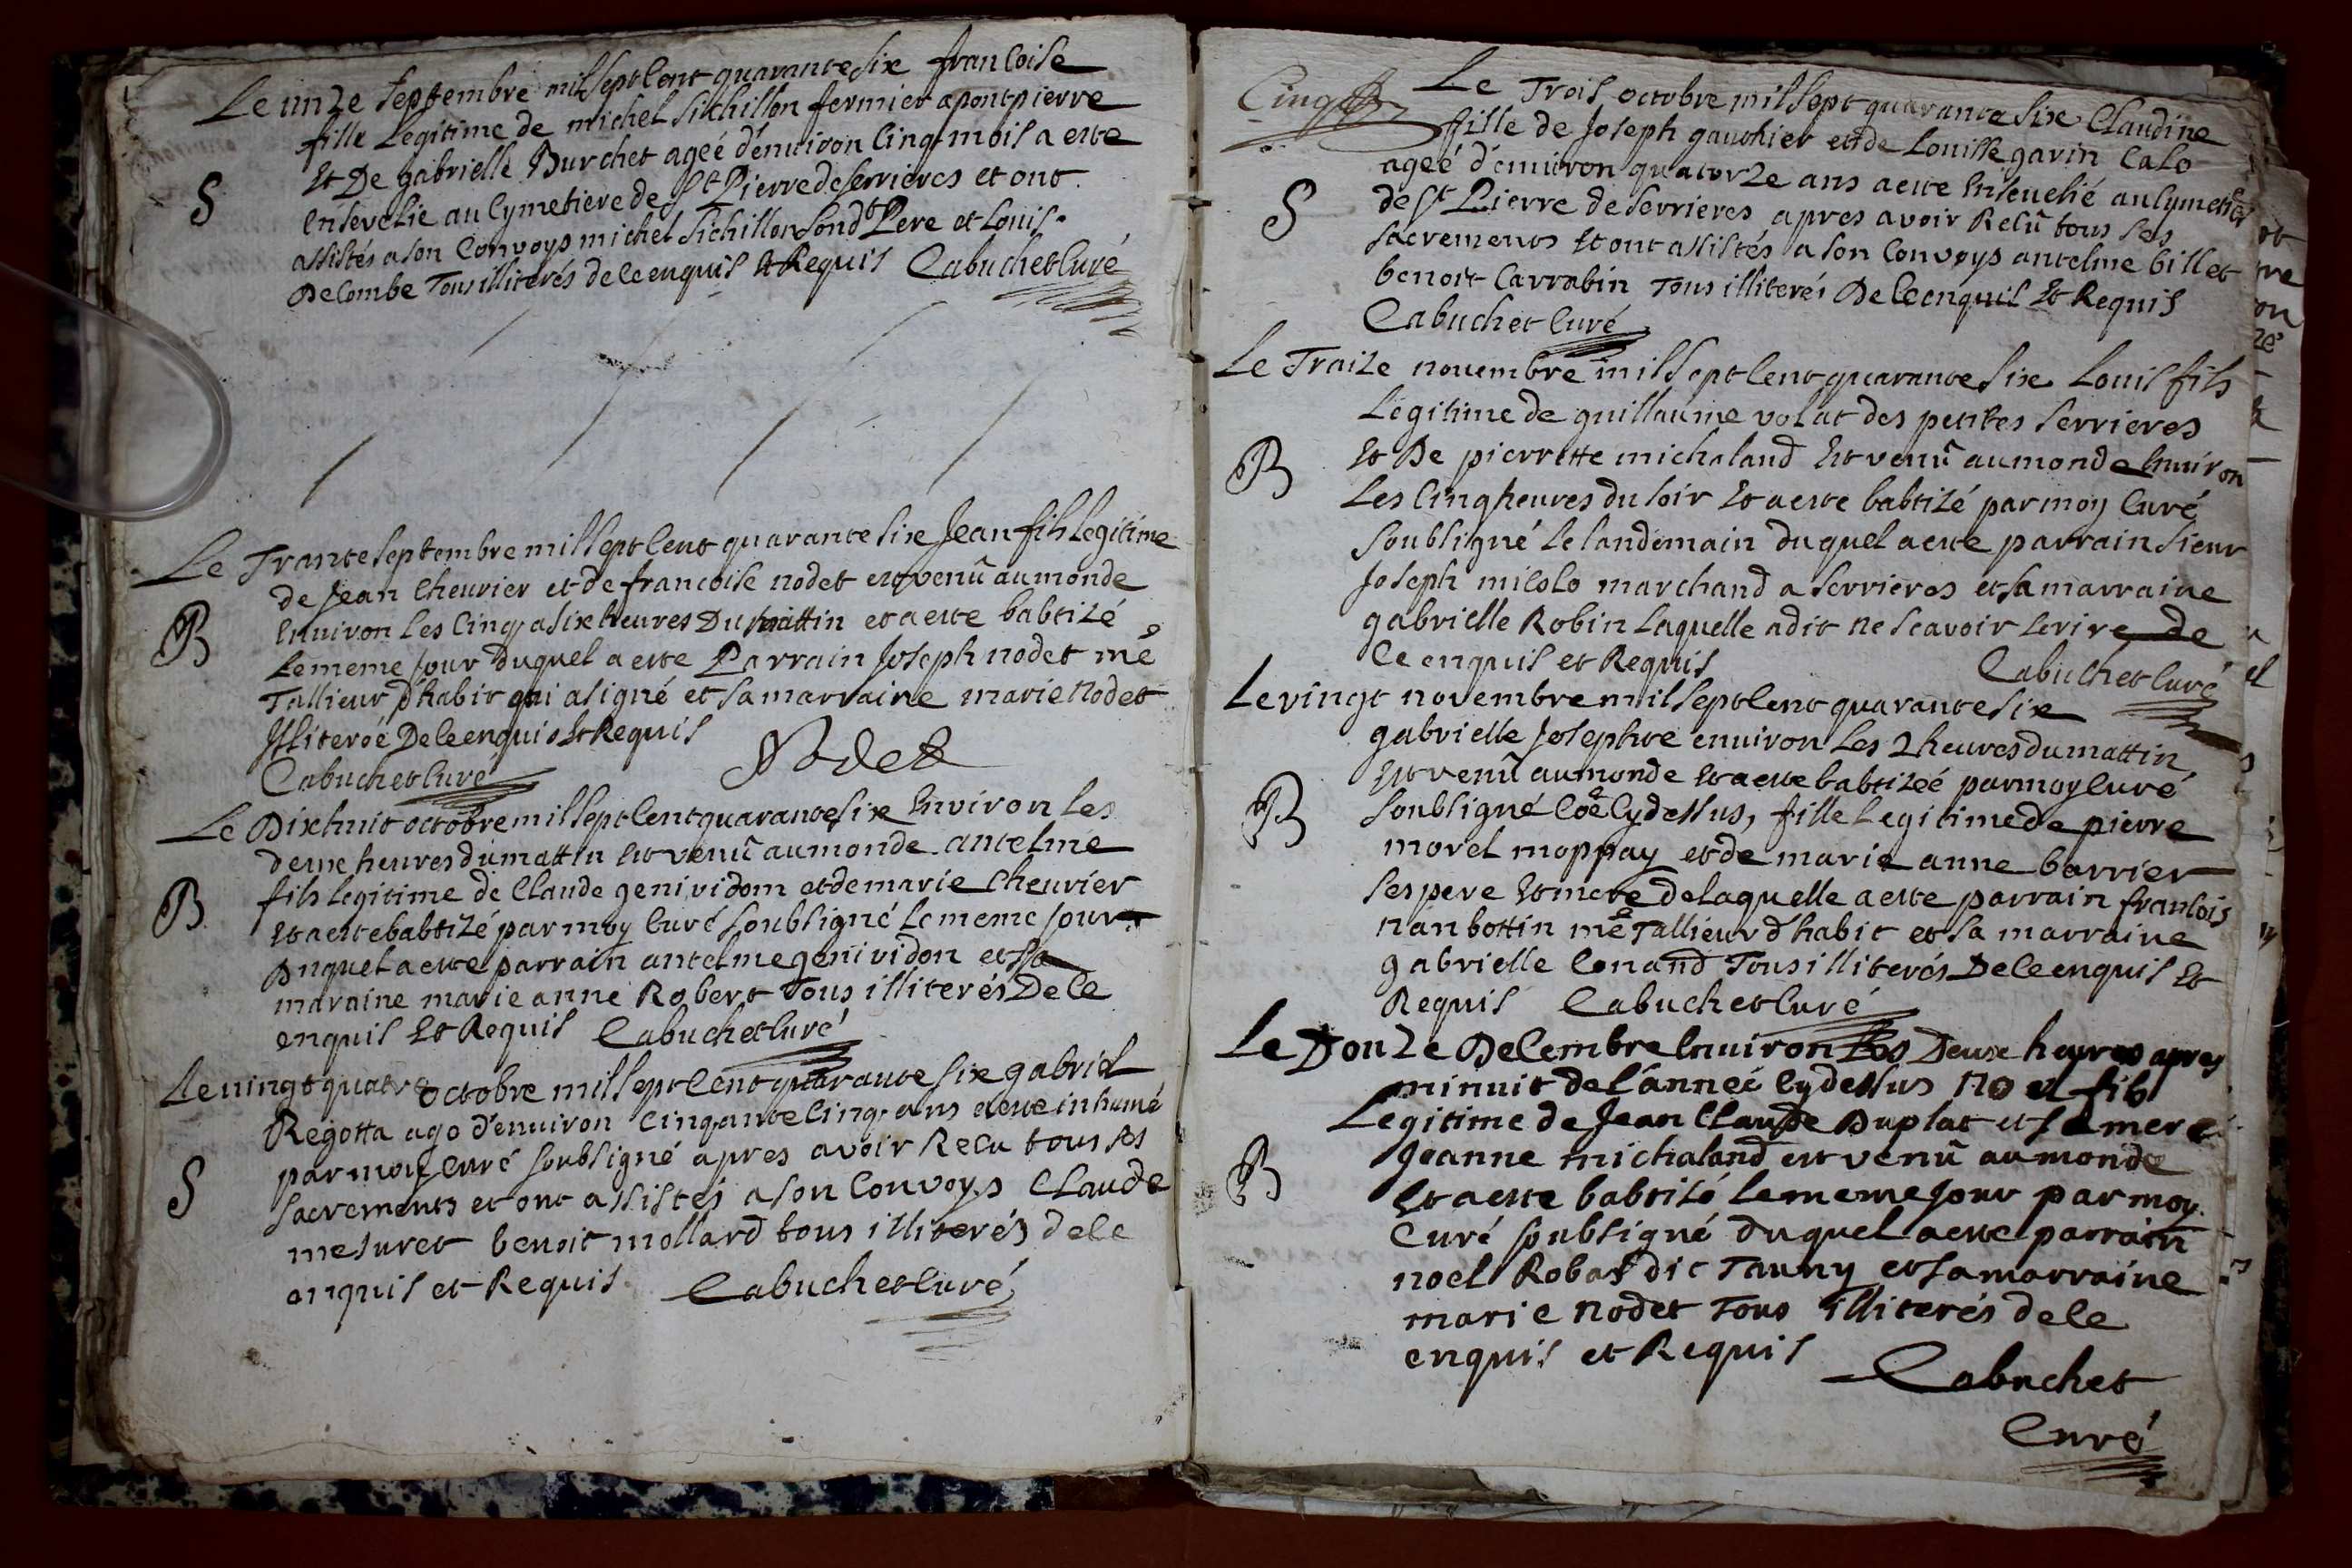 Le unze septembre mil sept cent quarante six francoise
fille Legitime de michel Sichillon fermier a pontpierre
Et De gabrielle Burchet ageé d'enuiron Cinq mois a este
S
Ensevelie au Cymetiere de St Pierre de serrieres et ont
assistés a son Convoys michel Sichillon sond Pere et Louis
Decombe Tous illiterés de ce enquis Et Requis Cabuchet Curé
Le Trante septembre mil sept Cent quarante six Jean fils Legitime
de Jean Cheurier et de francoise nodet est venû au monde
B
Enuiron Les Cinq a six heures Du mattin et a este babtizé
Le meme jour duquel a este Parrain Joseph nodet me
Tallieur d'habit qui a signé et sa marraine marie nodet
Illiteroé De ce enquis Et Requis
Nodet
Cabuchet Curé
Le Dixhuit octobre mil sept Cent quarante six Environ Les
deux heures du mattin est venû au monde antelme
fils Legitime de Claude genividom et de marie Cheurier
B
Et a este babtizé par moy Curé soubsigné Le meme jour
Duquel a este parrain antelme genividon et sa
maraine marie anne Robert Tous illiterés De Ce
enquis Et Requis Cabuchet Curé
Le uingt quatre octobre mil sept Cent quarante six gabriel
Regotta agé d'enuiron Cinqante Cinq ans a este inhumé
S
par moy Curé soubsigné apres avoir Recu tous ses
sacrements et ont assistés a son Convoys Claude
mesuret benoit mollard tous illiterés de Ce
enquis et Requis Cabuchet Curé
Cinq
Le Trois octobre mil sept quarante six Claudine
fille de Joseph gauthier et de Louisse garin Calo
ageé d'enuiron quatorze ans a este Enseuelié au Cymetiere
S
de St Pierre de serrieres apres avoir Recû tous ses
sacrements Et ont assistés a son Convoys antelme billet
benoit Carrabin Tous illiterés De Ce enquis Et Requis
Cabuchet Curé
Le Traize nouembre mil sept Cent quarante six Louis fils
Légitime de guillaume volat des petites serrieres
B
Et De pierrette michaland Est venû au monde Enuiron
Les Cinq heures du soir Et a este babtizé par moy Curé
soubsigné Le landemain duquel a este parrain sieur
Joseph micolo marchand a serrieres et sa marraine
gabrielle Robin Laquelle a dit ne scavoir Ecrire de
Ce enquis et Requis Cabuchet Curé
Le vingt novembre mil sept Cent quarante six
gabrielle Josephte enuiron Les 2 heures du mattin
Est venû au monde Et a este babtizeé par moy Curé
B
soubsigné Coe Cydessus, fille Legitime de pierre
morel moppay et de marie anne barrier
ses pere Et mere de Laquelle a este parrain francois
nanbottin me Tallieur d'habit et sa marraine
gabrielle Conand Tous illiterés De Ce enquis Et
Requis Cabuchet Curé
Le Douze Decembre Enuiron Les Deux heures apres
minuit de L'anneé Cydessus noel fils
Legitime de Jean Claude Duplat et sa mere
B
Jeanne michaland est venû au monde
Et a este babtizé Le meme jour par moy
Curé soubsigné duquel a este parrain
noel Robat dit Tauny et sa marraine
marie nodet Tous illiterés de Ce
enquis et Requis
Cabuchet
Curé